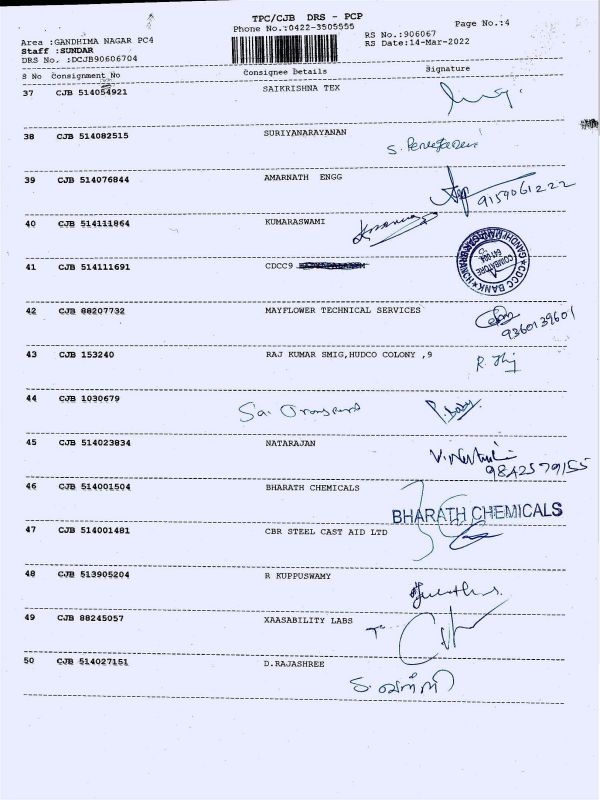 TPC/CJB DRS - PCP
Phone No.:0422-3505555
Page No.:4
Area :GANDHIMA NAGAR PC4
RS No.:906067
Staff :SUNDAR
RS Date:14-Mar-2022
DRS No. :DCJB90606704
S No Consignment No Consignee Details Signature
37 CJB 514054921 SAIKRISHNA TEX
38 CJB 514082515 SURIYANARAYANAN
39 CJB 514076844 AMARNATH ENGG
9159061222
40 CJB 514111864 KUMARASWAMI
41 CJB 514111691 CDCC9
CDCC BANK
COIMBATORE
42 CJB 88207732 MAYFLOWER TECHNICAL SERVICES
9360139601
43 CJB 153240 RAJ KUMAR SMIG,HUDCO COLONY ,9
44 CJB 1030679
45 CJB 514023834 NATARAJAN
9842579155
46 CJB 514001504 BHARATH CHEMICALS
BHARATH CHEMICALS
47 CJB 514001481 CBR STEEL CAST AID LTD
48 CJB 513905204 R KUPPUSWAMY
49 CJB 88245057 XAASABILITY LABS
50 CJB 514027151 D.RAJASHREE